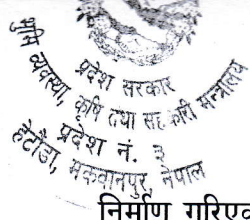 प्रदेश सरकार
भूमि व्यवस्था, कृषि तथा सहकारी मन्त्रालय
प्रदेश नं. ३
हेटौंडा, मकवानपुर, नेपाल
निर्माण गरिएव